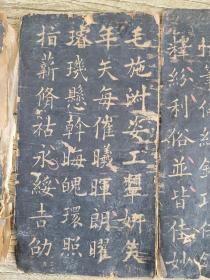 釋紛利俗並皆佳妙
毛施淑姿工顰妍笑
年矢每催曦暉朗曜
璿璣懸斡晦魄環照
指薪脩祜永綏吉劭